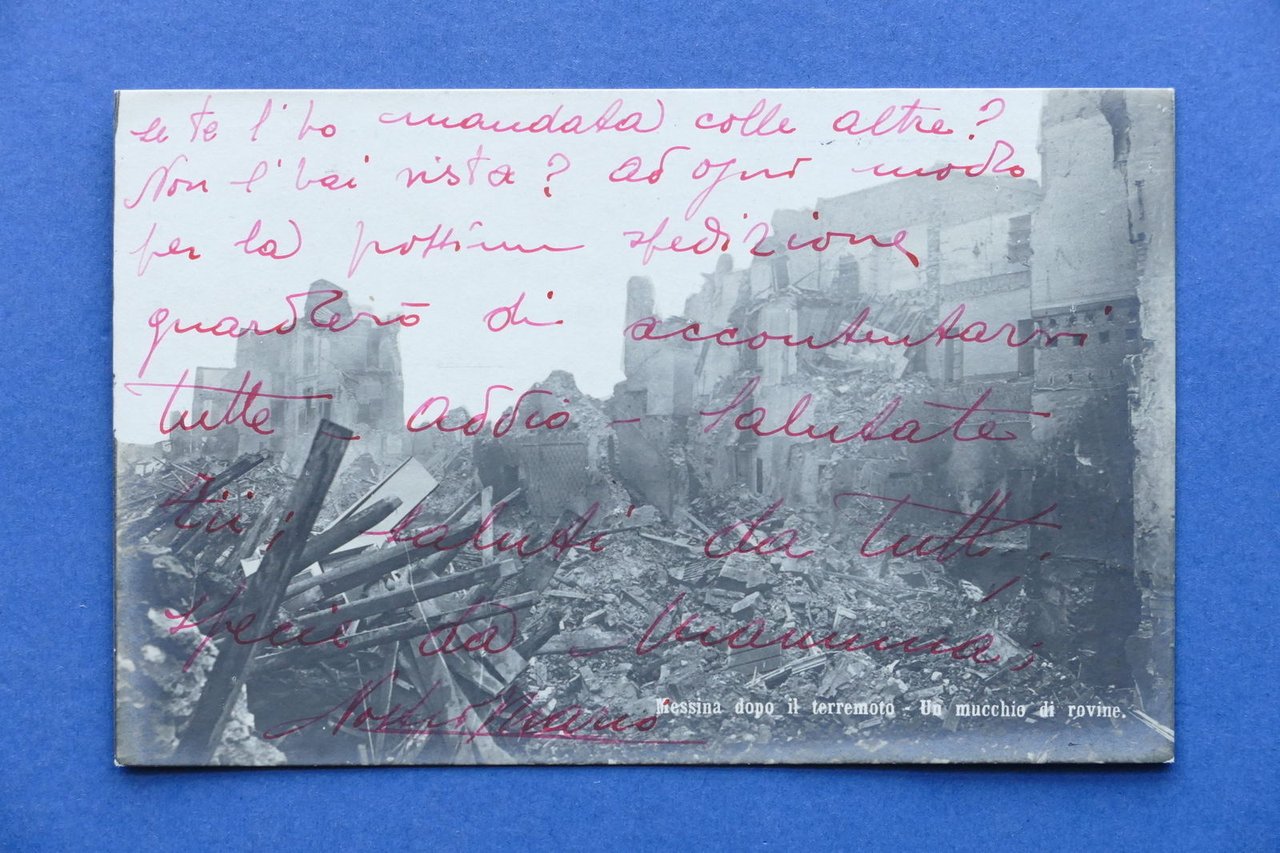 se te l'ho mandata colle altre?
Non l'hai vista? Ad ogni modo
per la possima spedizione
guarderò di accontentarvi
tutte addio - Salutate
Zii; saluti da tutti;
specie da mamma;
Vostro
Messina dopo il terremoto - Un mucchio di rovine.